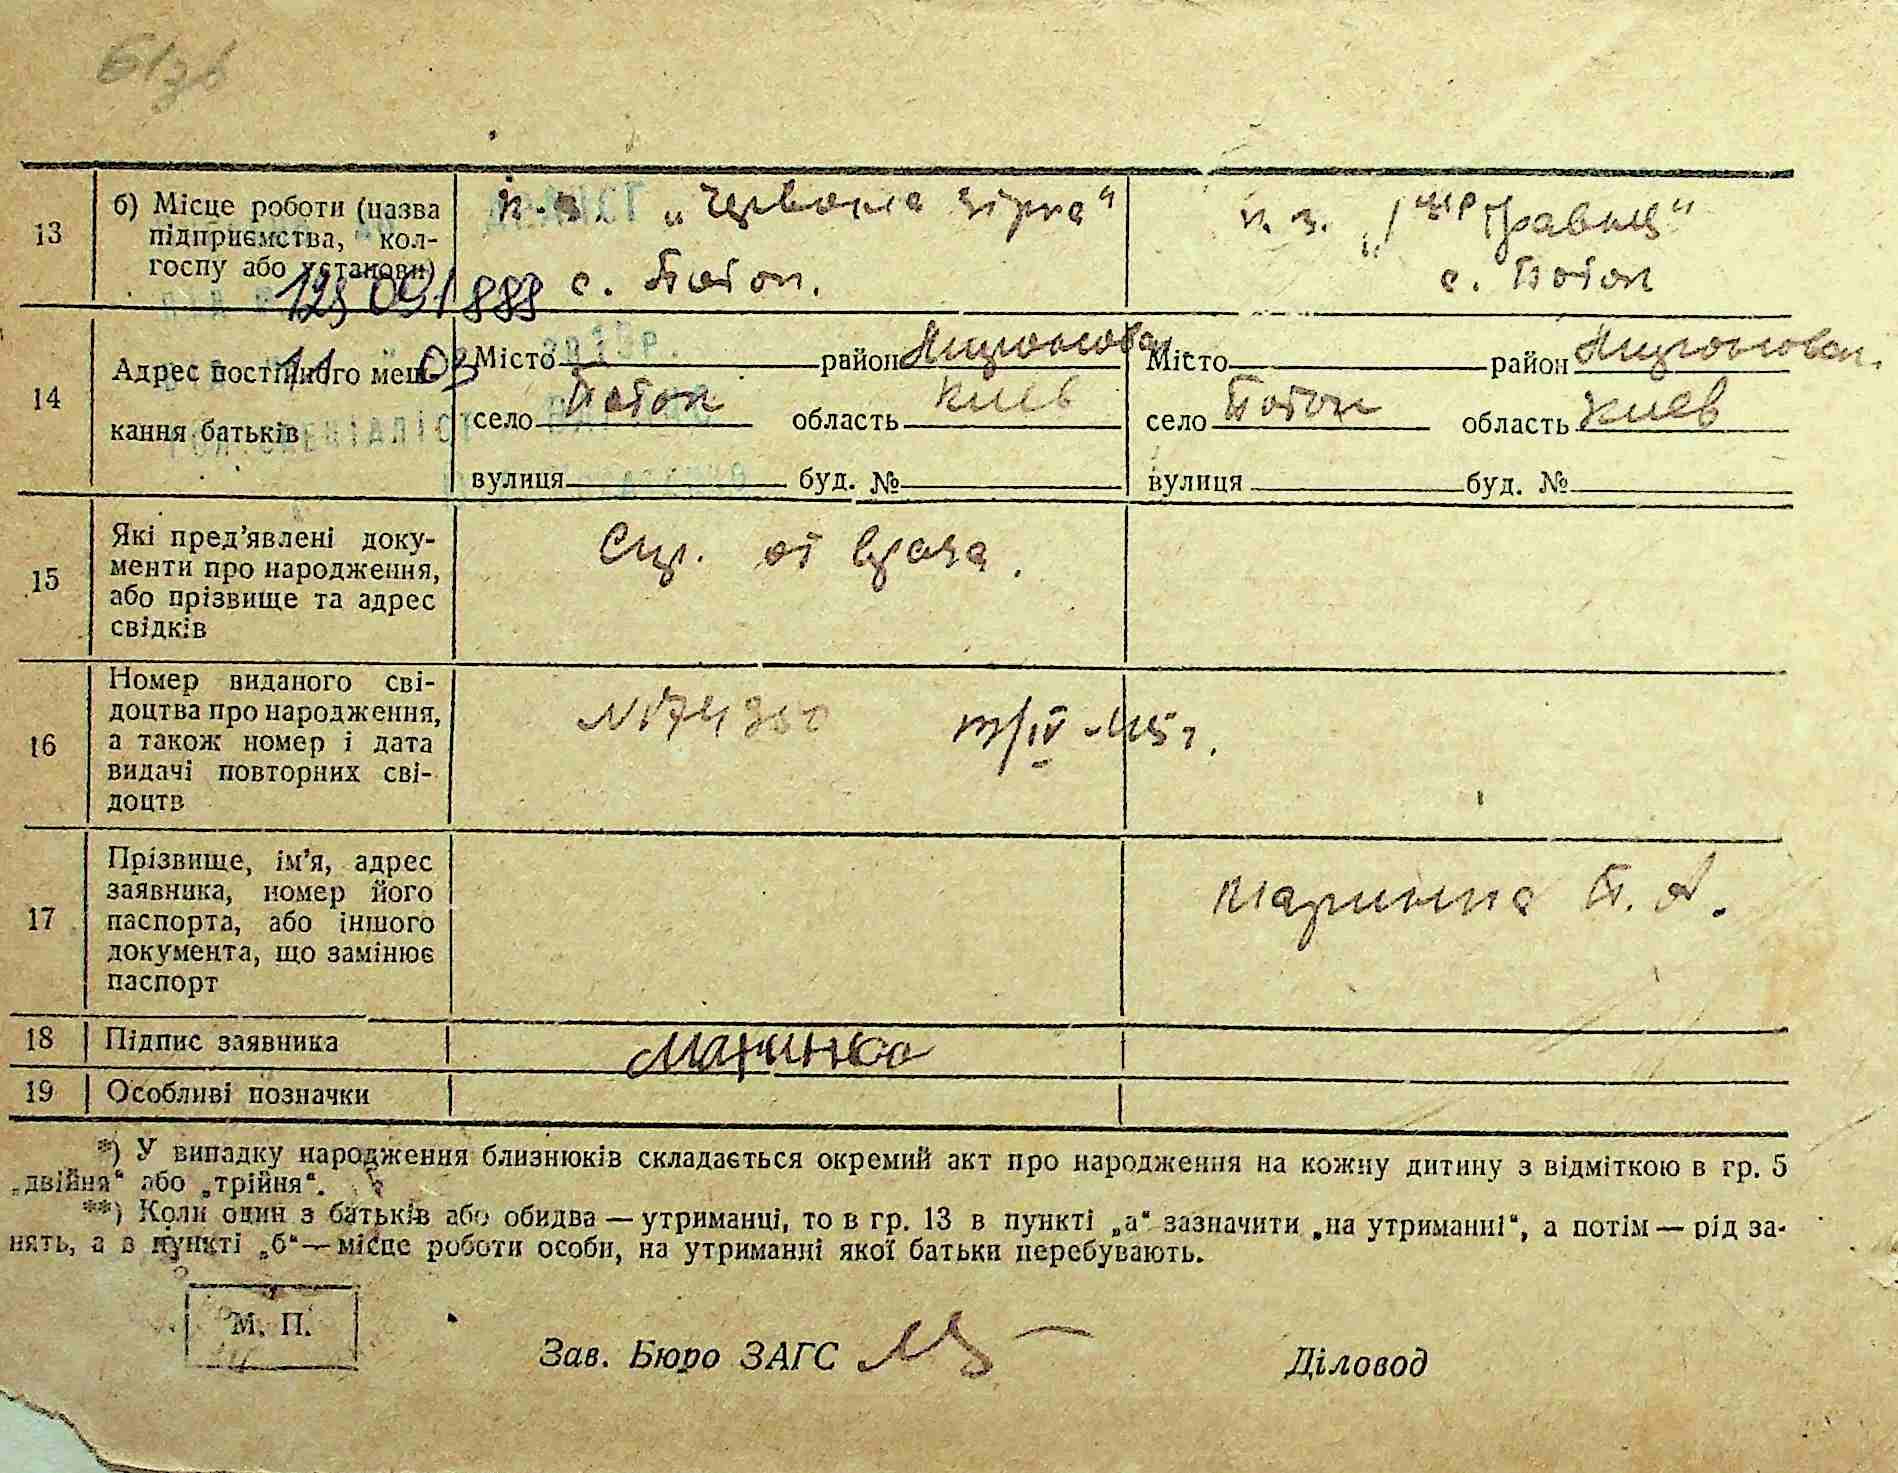 13
б) Місце роботи (назва
підприємства, кол-
госпу або установи)
к. з. „Червона зірка“
с. Поток.
к. з.
с. Поток
125091888
11 03
14
Адрес постійного меш-
кання батьків
Місто район Мироновск.
село Поток область Киев
вулиця буд. №
Місто район Мироновск.
село Поток область Киев
вулиця буд. №
15
Які пред’явлені доку-
менти про народження,
або прізвище та адрес
свідків
Спр. от врача.
16
Номер виданого сві-
доцтва про народження,
а також номер і дата
видачі повторних сві-
доцтв
17
Прізвище, ім’я, адрес
заявника, номер його
паспорта, або іншого
документа, що замінює
паспорт
Маринка П. А.
18
Підпис заявника
Маринка
19
Особливі позначки
*) У випадку народження близнюків складається окремий акт про народження на кожну дитину з відміткою в гр. 5
„двійня“ або „трійня“.
**) Коли один з батьків або обидва — утриманці, то в гр. 13 в пункті „а“ зазначити „на утриманні“, а потім — рід за-
нять, а в пункті „б“ — місце роботи особи, на утриманні якої батьки перебувають.
М. П.
Зав. Бюро ЗАГС
Діловод